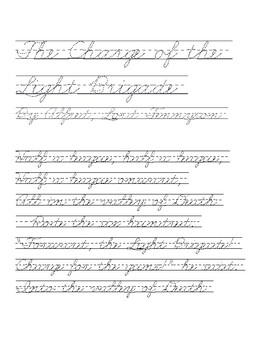 The Charge of the
Light Brigade
By Alfred, Lord Tennyson
Half a league, half a league,
Half a league onward,
All in the valley of Death
Rode the six hundred.
"Forward, the Light Brigade!
Charge for the guns!" he said.
Into the valley of Death